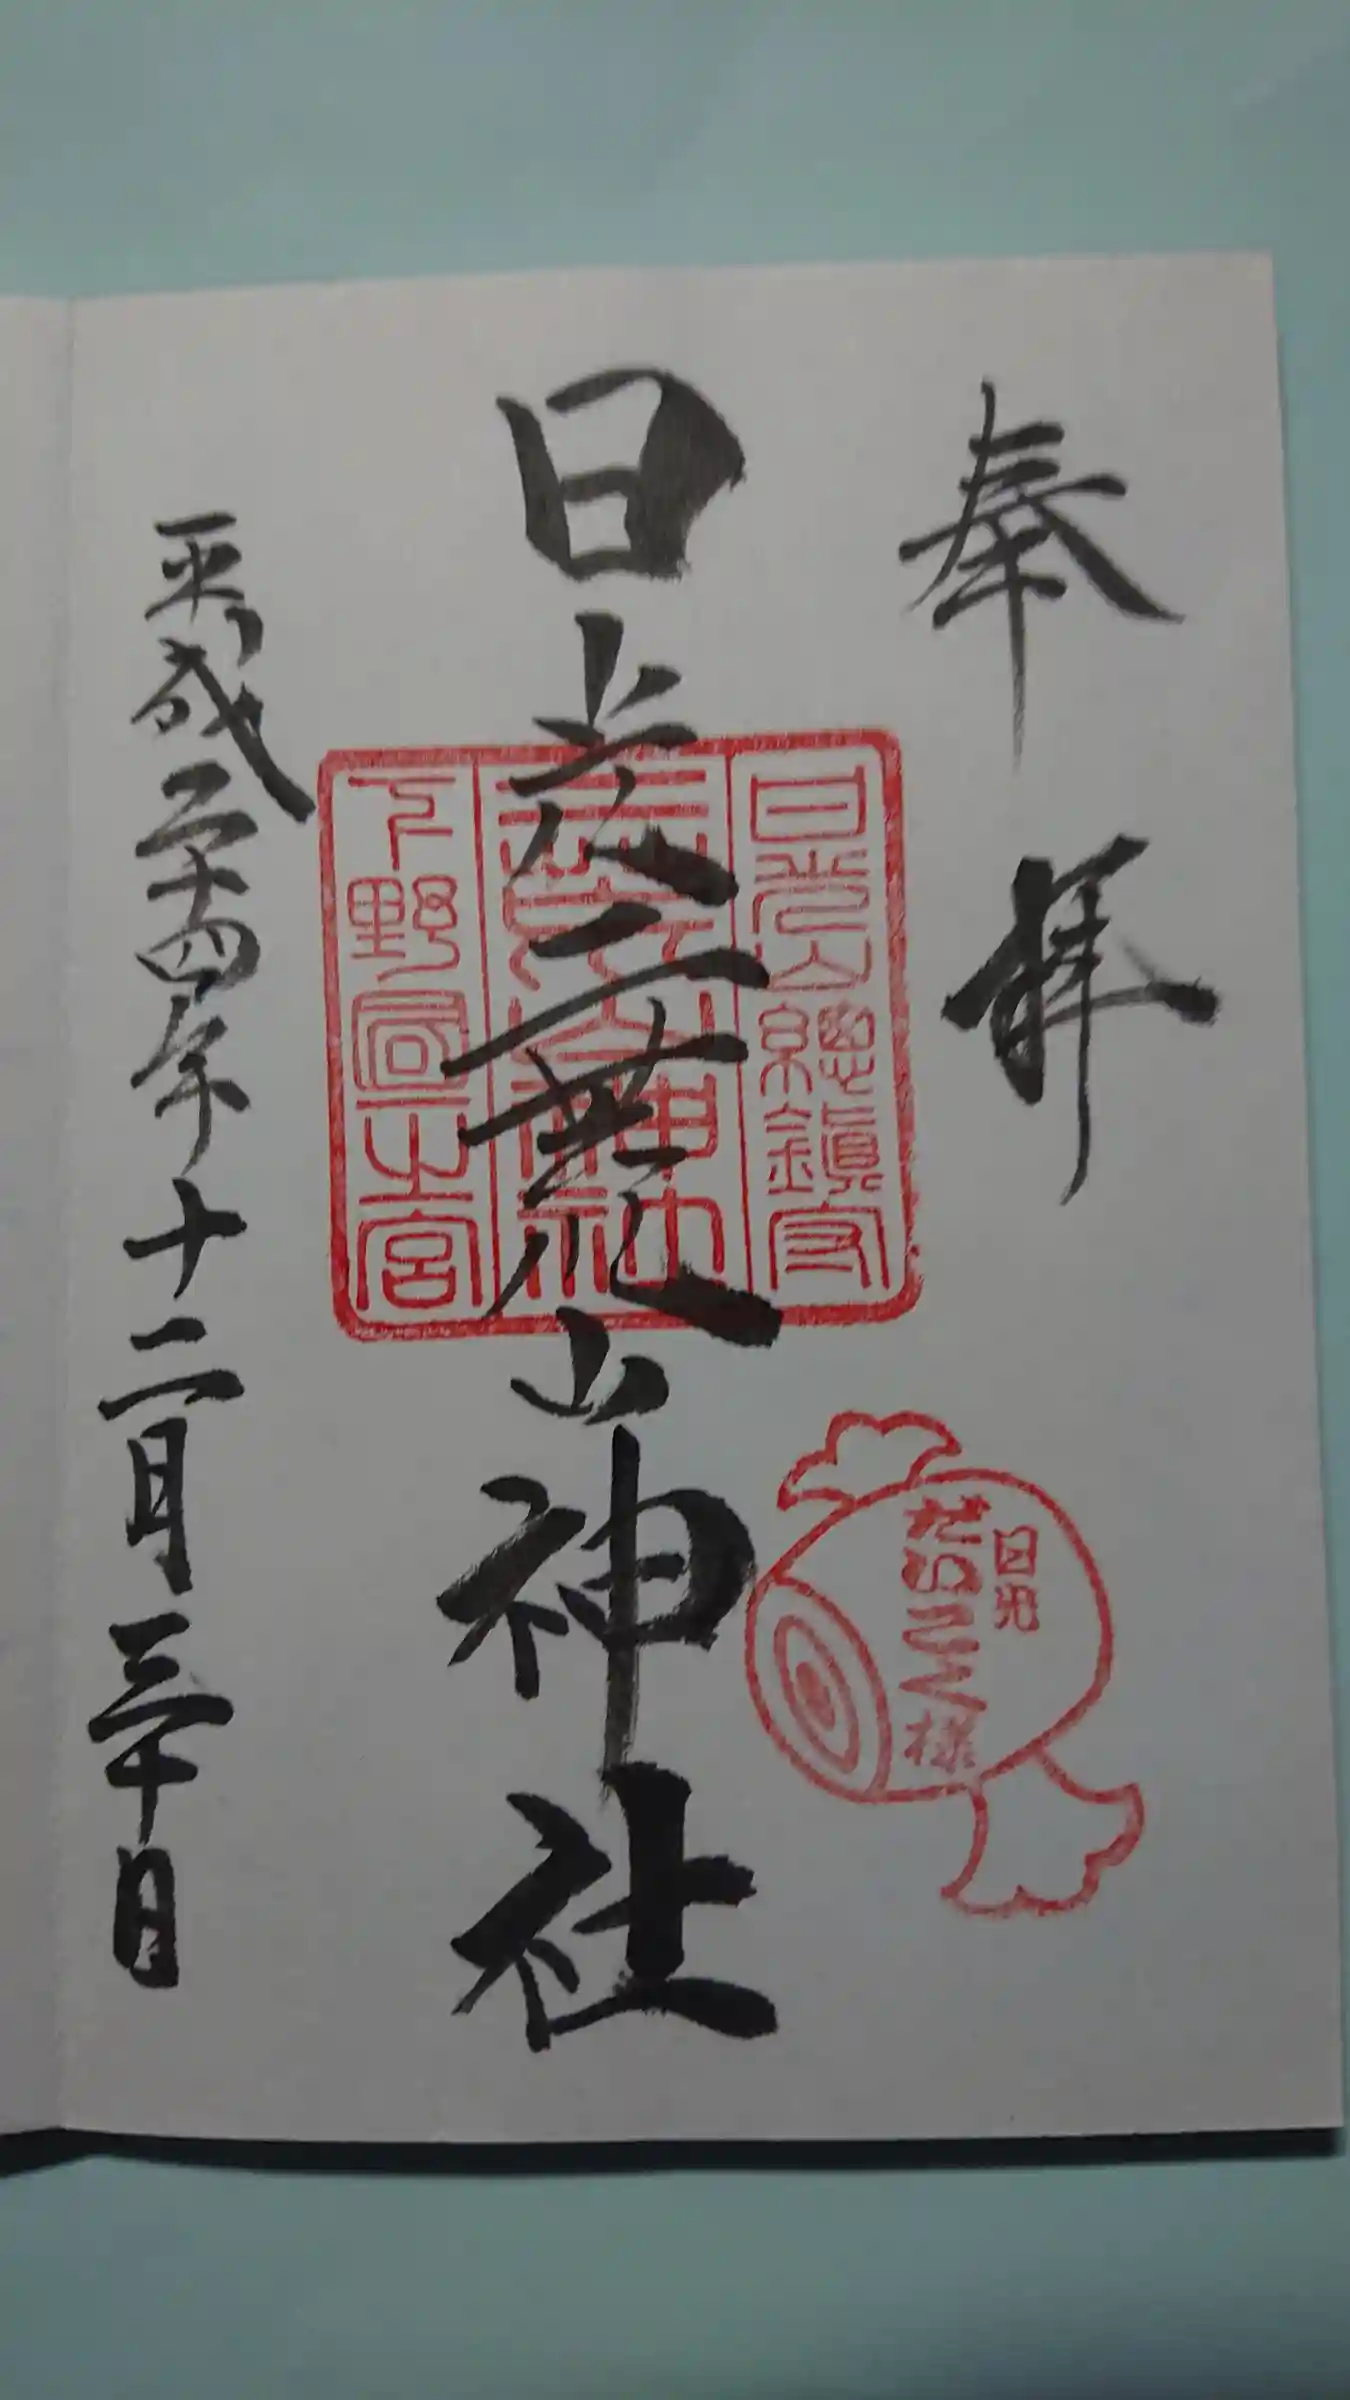 奉拝
日光二荒山神社
日光山總鎮守
二荒山神社
下野国一之宮
日光
だいこく様
平成二十四年十二月三十日